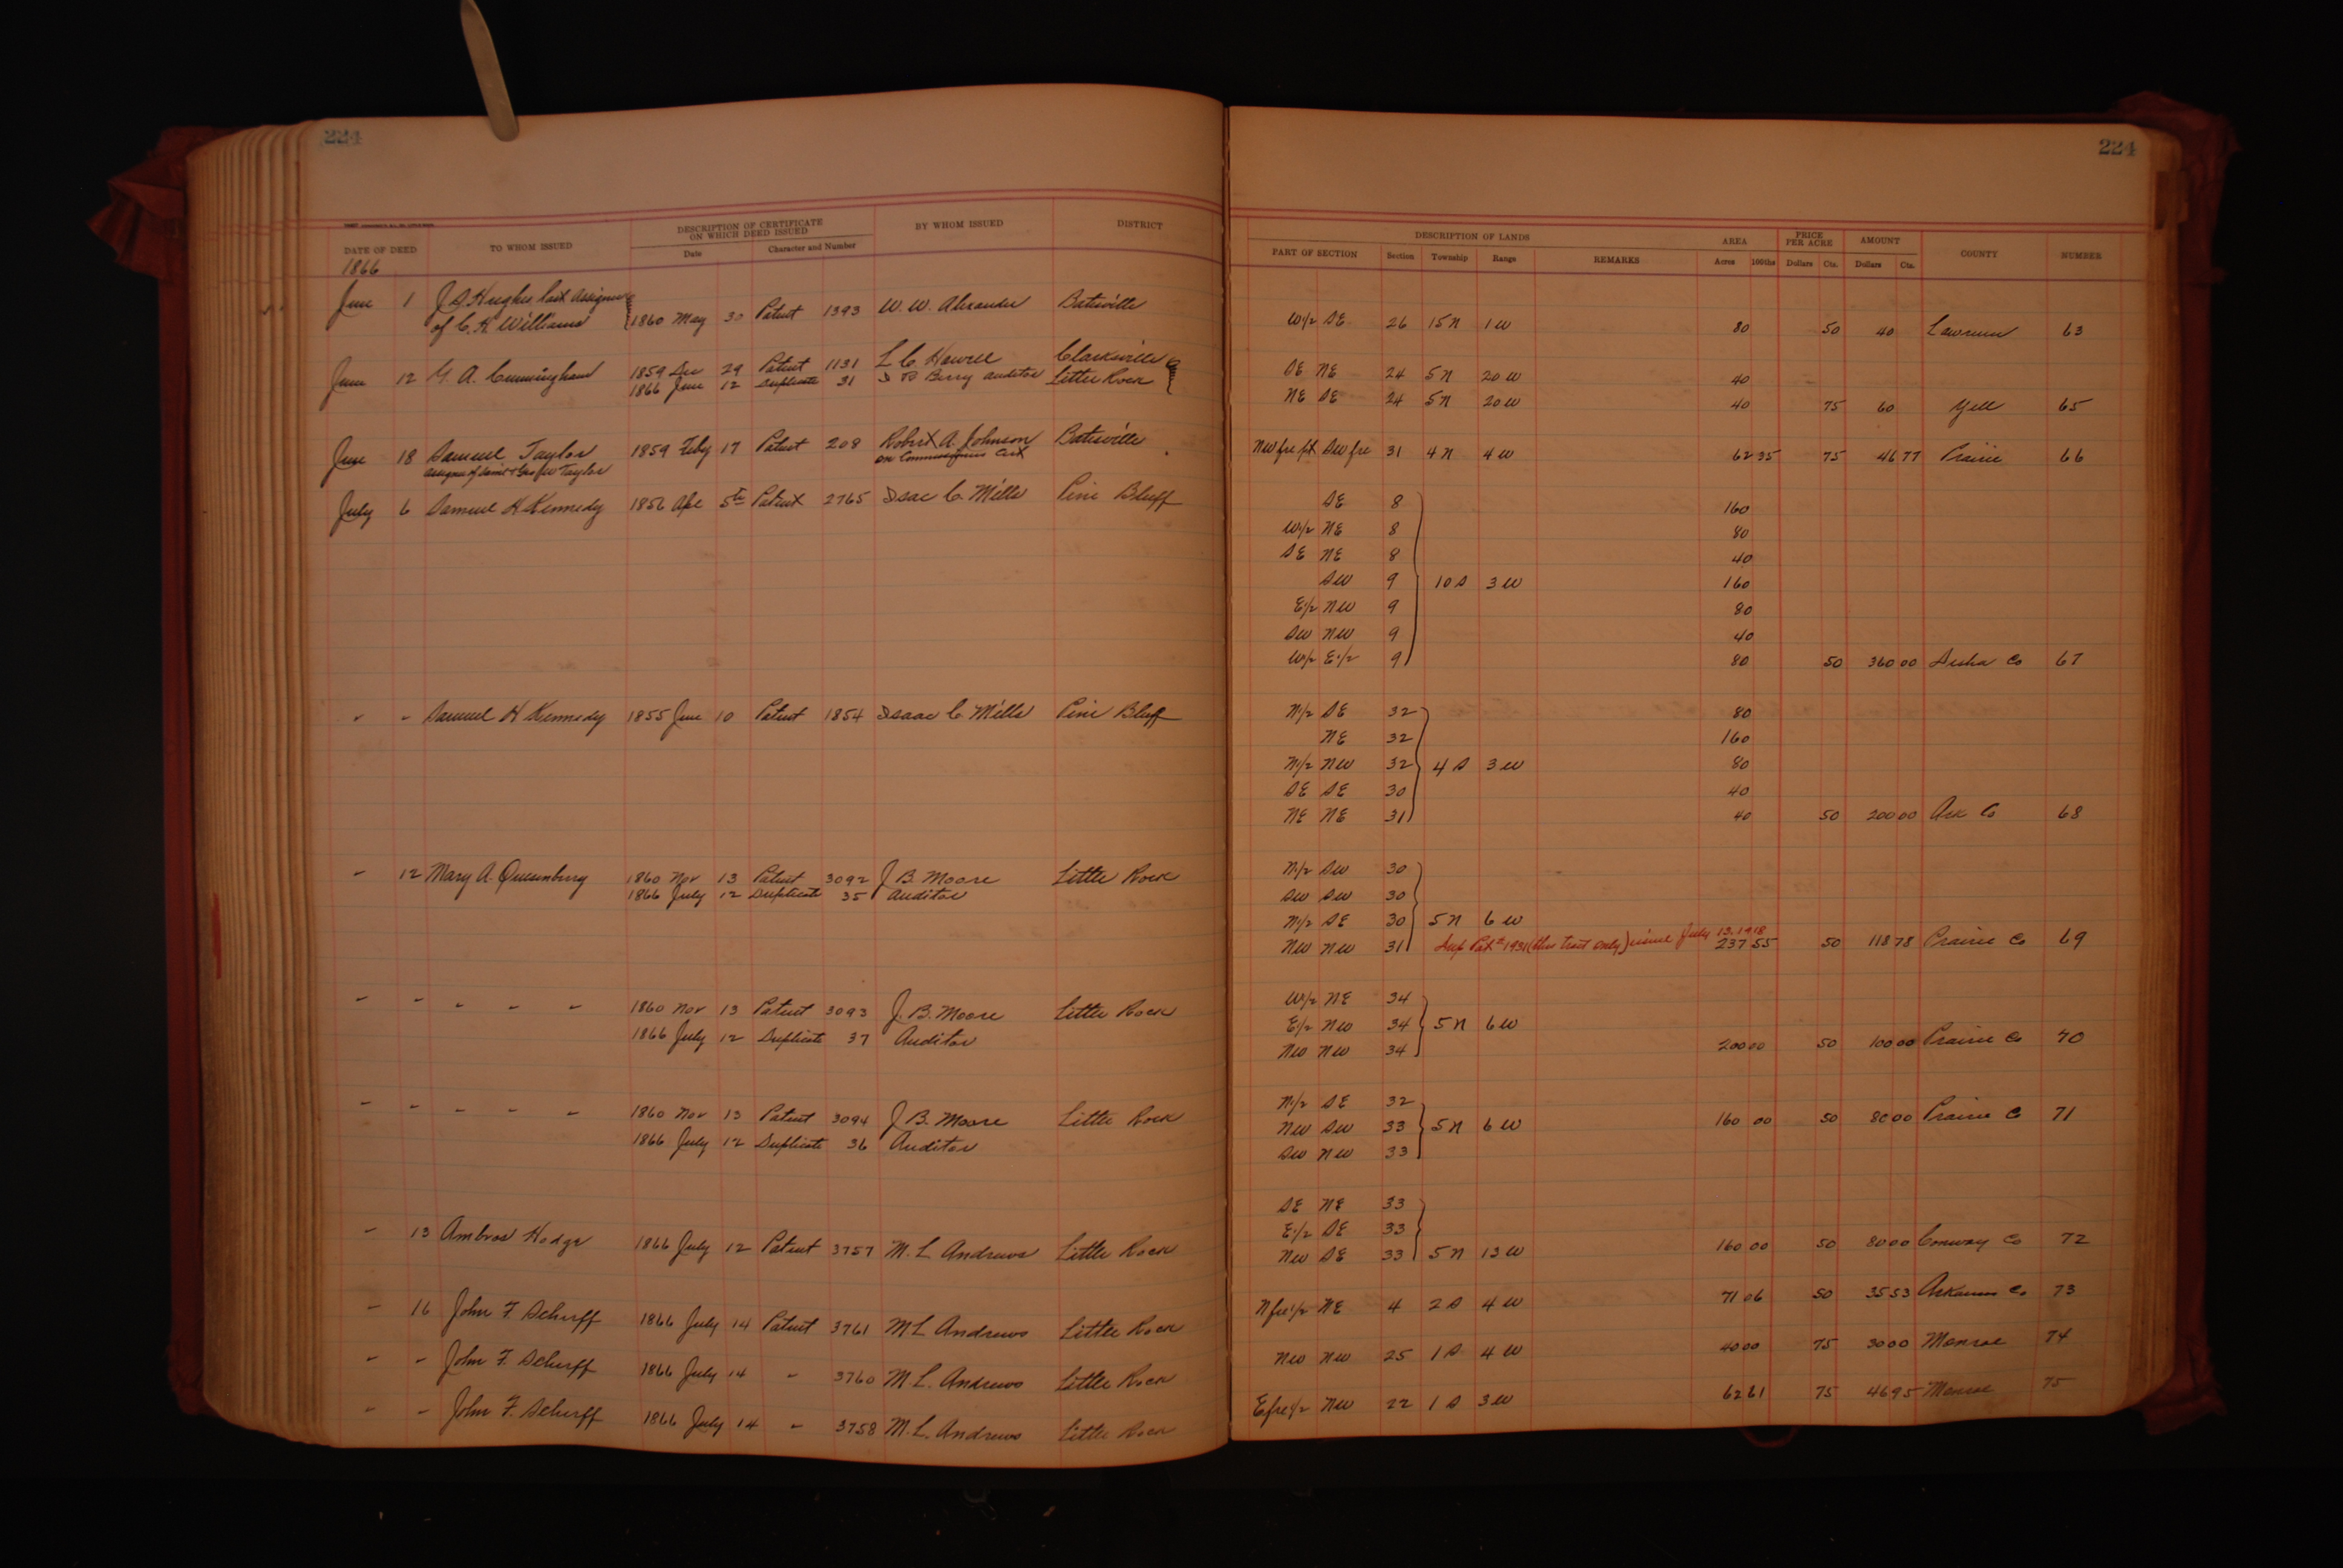 224
DATE OF DEED TO WHOM ISSUED DESCRIPTION OF CERTIFICATE ON WHICH DEED ISSUED BY WHOM ISSUED DISTRICT
Date Character and Number
1866
June 1 J S Hughes last Assignee
of C. H Williams 1860 May 30 Patent 1393 W. W. Alexander Batesville
June 12 G. A. Cunningham 1859 Dec 29 Patent 1131 L C Howell Clarksville
1866 June 12 Duplicate 31 Berry Auditor Little Rock
June 18 Samuel Taylor 1859 Feby 17 Patent 208 Robert A. Johnson Batesville
assignee of Taylor
July 6 Samuel H Kennedy 1856 Apl 5th Patent 2765 Isaac C. Mills Pine Bluff
" " Samuel H Kennedy 1855 June 10 Patent 1854 Isaac C Mills Pine Bluff
" 12 Mary A. Quesenbury 1860 Nov 13 Patent 3092 J B. Moore Little Rock
1866 July 12 Duplicate 35 Auditor
" " " " " 1860 Nov 13 Patent 3093 J. B. Moore Little Rock
1866 July 12 Duplicate 37 Auditor
" " " " " 1860 Nov 13 Patent 3094 J B. Moore Little Rock
1866 July 12 Duplicate 36 Auditor
" 13 Ambros Hodge 1866 July 12 Patent 3757 M. L Andrews Little Rock
" 16 John F. Scherff 1866 July 14 Patent 3761 M L Andrews Little Rock
" " John F. Scherff 1866 July 14 " 3760 M L. Andrews Little Rock
" " John F. Scherff 1866 July 14 " 3758 M. L. Andrews Little Rock
224
DESCRIPTION OF LANDS AREA PRICE PER ACRE AMOUNT COUNTY NUMBER
PART OF SECTION Section Township Range REMARKS Acres 100ths Dollars Cts. Dollars Cts.
W1/2 SE 26 15N 1W 80 50 40 Lawrence 63
SE NE 24 5N 20W 40
NE SE 24 5N 20W 40 75 60 Yell 65
NW fre pt SW fre 31 4N 4W 62 35 75 46 77 Prairie 66
SE 8 160
W1/2 NE 8 80
SE NE 8 40
SW 9 10 S 3 W 160
E1/2 NW 9 80
SW NW 9 40
W1/2 E1/2 9 80 50 360 00 Desha Co 67
N1/2 SE 32 80
NE 32 160
N1/2 NW 32 4 S 3 W 80
SE SE 30 40
NE NE 31 40 50 200 00 Ark Co 68
N1/2 SW 30
SW SW 30
N1/2 SE 30 5N 6W
NW NW 31 Dup Pat # 1931 (this tract only) issued July 13, 1918 237 55 50 118 78 Prairie Co 69
W1/2 NE 34
E1/2 NW 34 5N 6W
NW NW 34 200 00 50 100 00 Prairie Co 70
N1/2 SE 32
NW SW 33 5N 6W 160 00 50 80 00 Prairie C 71
SW NW 33
SE NE 33
E1/2 SE 33
NW SE 33 5N 13W 160 00 50 80 00 Conway Co 72
N fre 1/2 NE 4 2 S 4 W 71 06 50 35 53 Arkansas Co 73
NW NW 25 1 S 4 W 40 00 75 30 00 Monroe 74
E fre 1/2 NW 22 1 S 3 W 62 61 75 46 95 Monroe 75